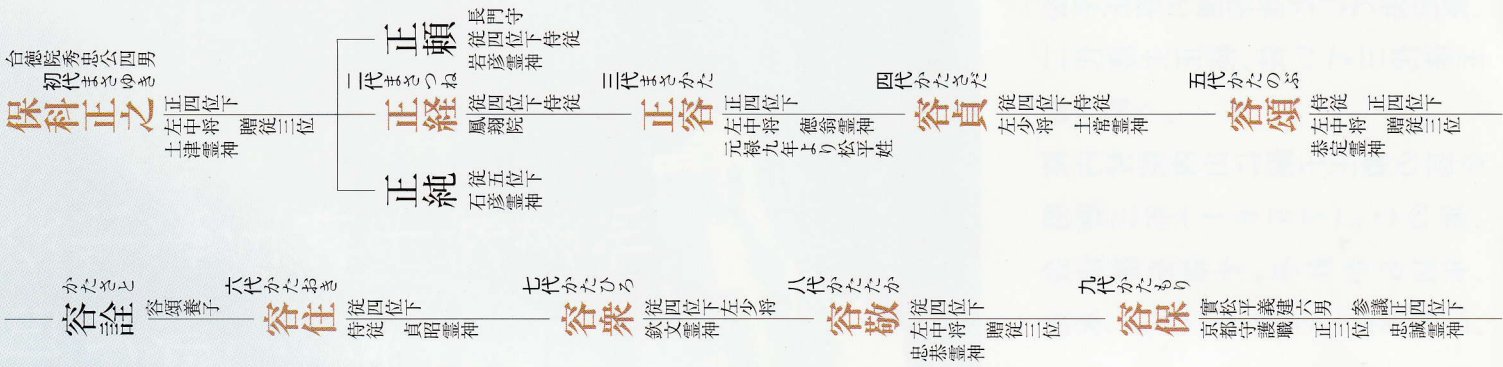 台徳院秀忠公四男
初代まさゆき
保科正之
正四位下
左中将 贈従三位
土津霊神
正頼
長門守
従四位下侍従
岩彦霊神
二代まさつね
正経
従四位下侍従
鳳翔院
正純
従五位下
石彦霊神
三代まさかた
正容
正四位下
左中将 徳翁霊神
元禄九年より松平姓
四代かたさだ
容貞
従四位下侍従
左少将 土常霊神
五代かたのぶ
容頌
侍従 正四位下
左中将 贈従三位
恭定霊神
かたさと
容詮
容頌養子
六代かたおき
容住
従四位下
侍従 貞昭霊神
七代かたひろ
容衆
従四位下左少将
欽文霊神
八代かたたか
容敬
従四位下
左中将 贈従三位
忠恭霊神
九代かたもり
容保
實松平義建六男 参議正四位下
京都守護職 正三位 忠誠霊神